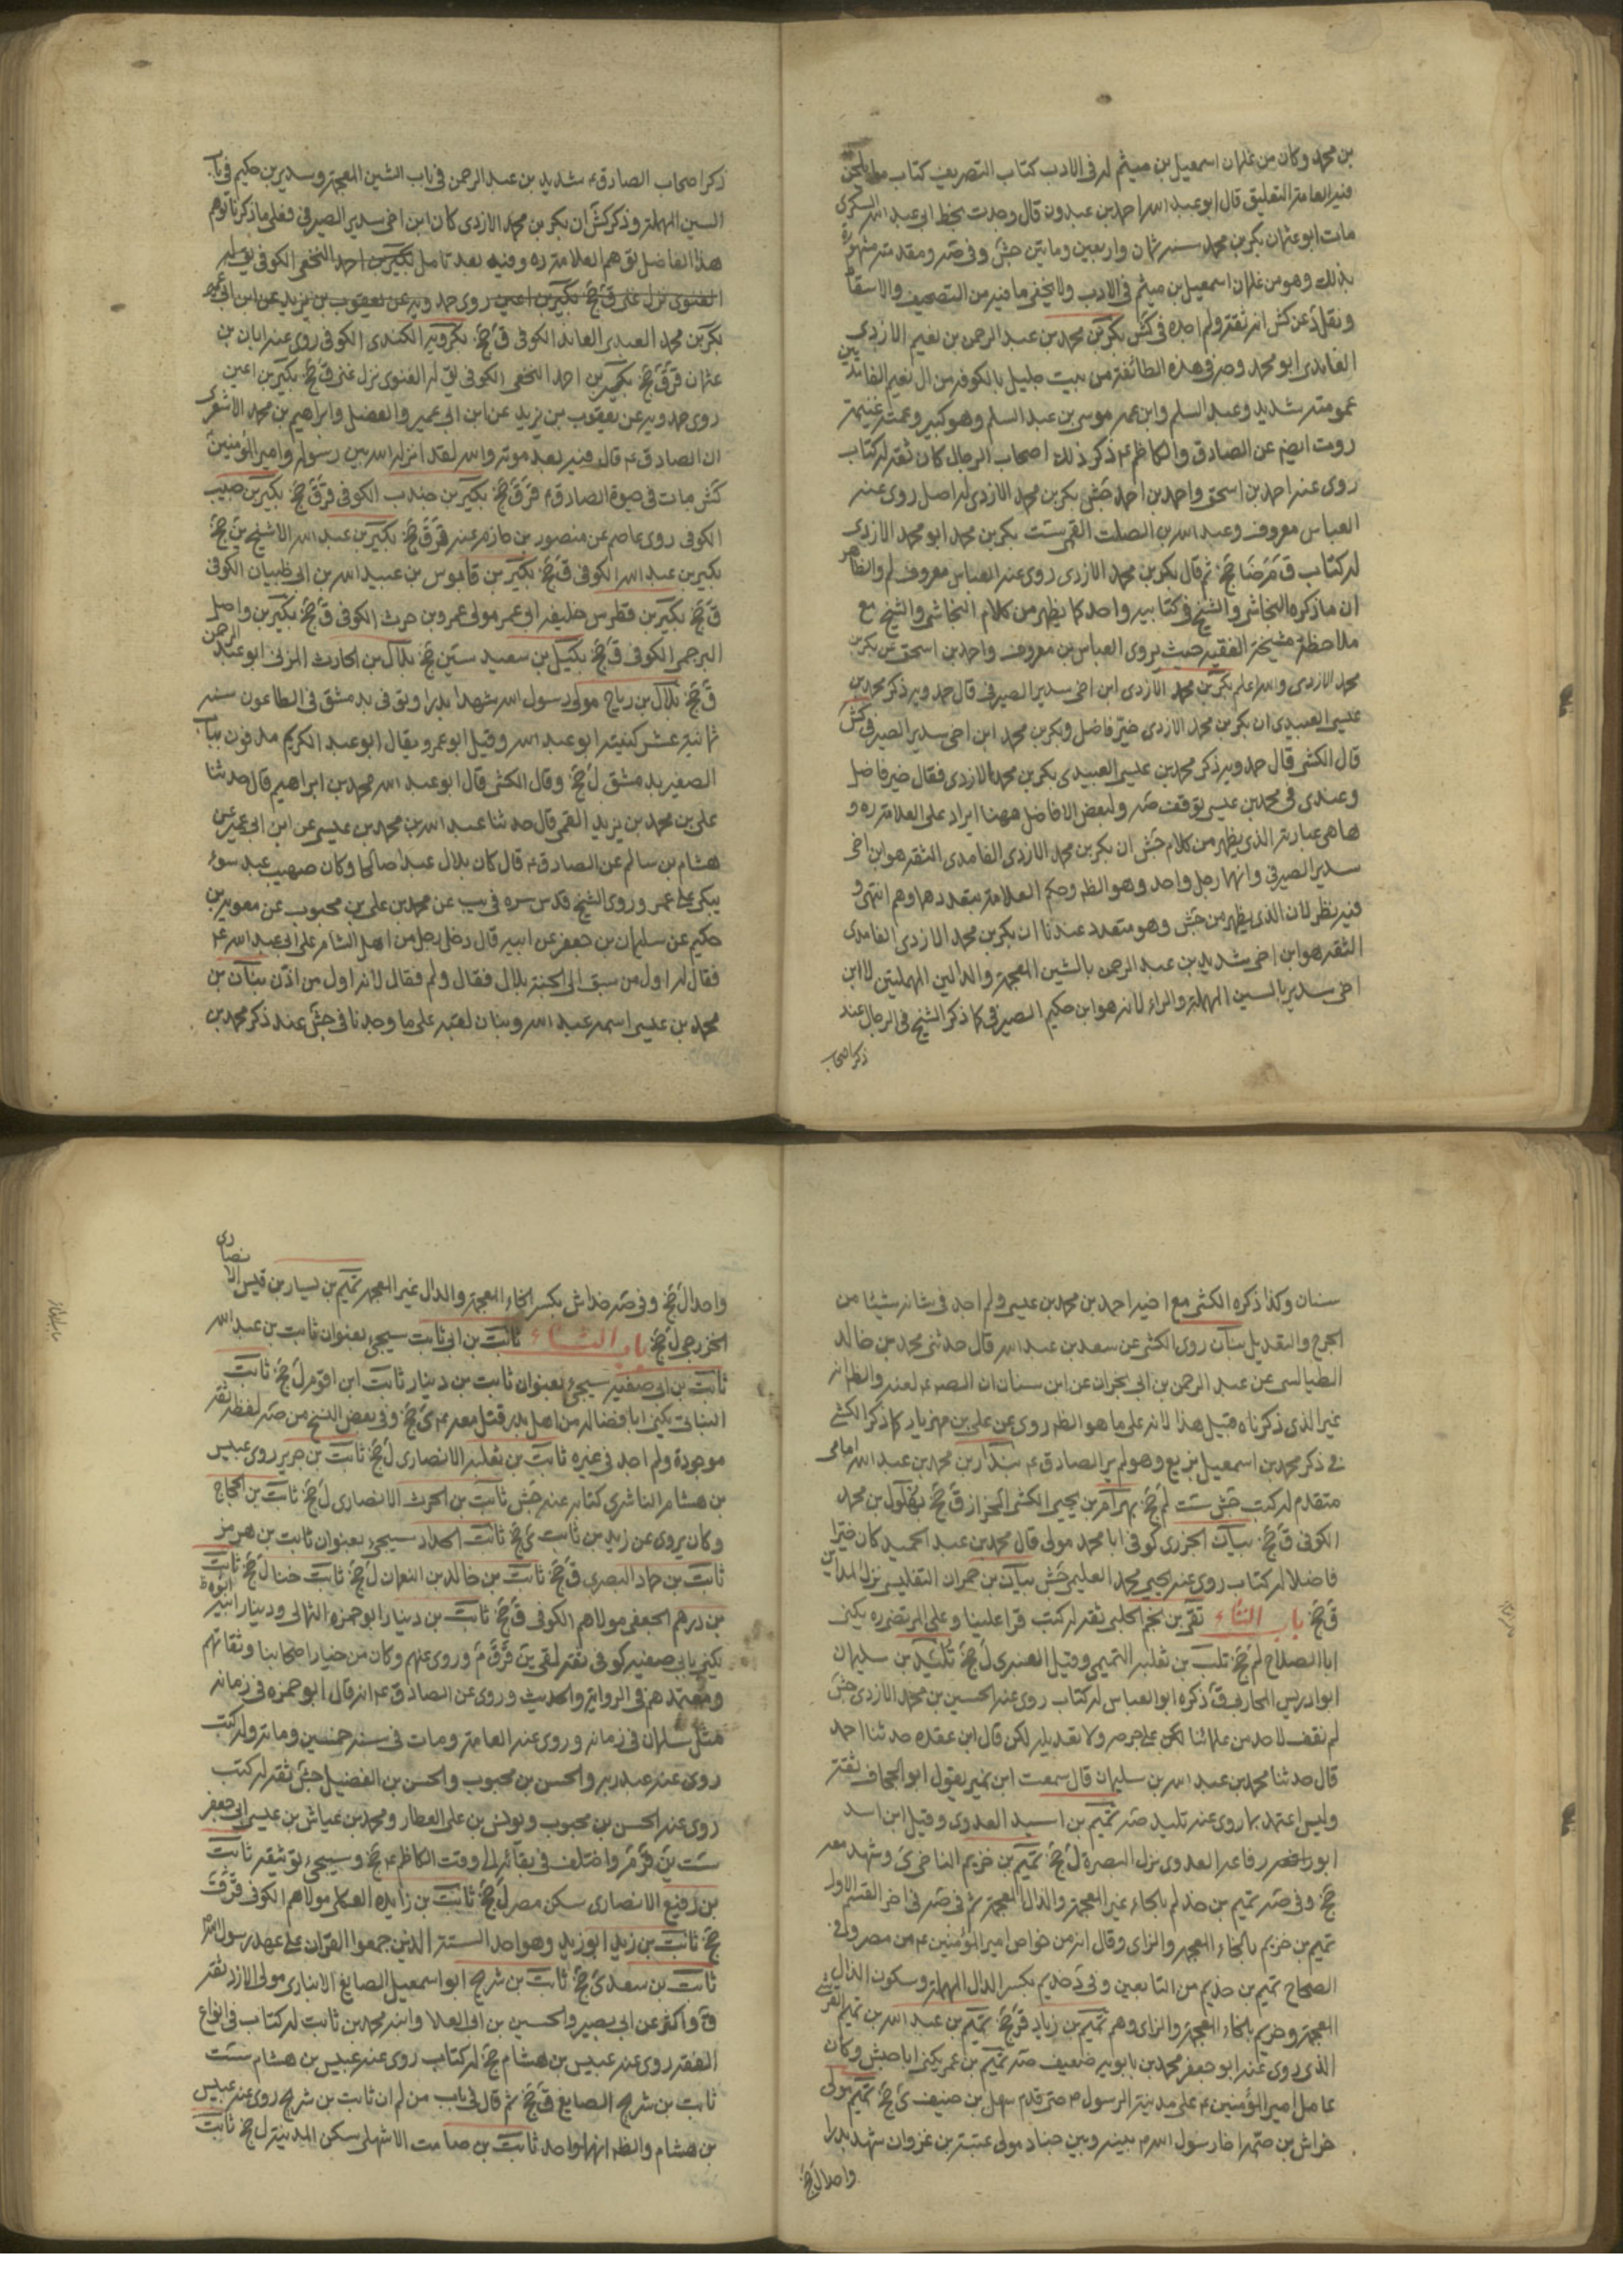 بن محمد وكان من غلمان اسمعيل بن ميثم له في الادب كتاب التصريف كتاب ما يلحن
فيه العامة التعليق قال ابو عبد الله احمد بن عبدون قال وجدت بخط ابي عبد الله السكري
مات ابو عثمان بكر بن محمد سنة ثمان واربعين ومايتين جش وفي صه ومقدمته مشهورة
بذلك وهو من غلمان اسمعيل بن ميثم في الادب ولا يخفى ما فيه من التصحيف والاسقاط
ونقل د عن كش انه ثقة ولم اجده في كش بكر بن محمد بن عبد الرحمن بن نعيم الازدي
الغامدي ابو محمد وجه في هذه الطائفة من بيت جليل بالكوفة من ال نعيم الغامديين
عمومته شديد وعبد السلم وابن عمه موسى بن عبد السلم وهو كبير وعمته غنيمة
روت ايضا عن الصادق والكاظم ع ذكر ذلك اصحاب الرجال كان ثقة له كتاب
روى عنه احمد بن اسحق واحمد بن احمد جش بكر بن محمد الازدي له اصل روى عنه
العباس معروف وعبد الله بن الصلت القمي ست بكر بن محمد ابو محمد الازدي
له كتاب ق م ضا جخ ثم قال بكر بن محمد الازدي روى عنه العباس معروف لم والظاهر
ان ما ذكره النجاشي والشيخ في كتابيه واحد كما يظهر من كلام النجاشي والشيخ مع
ملاحظة مشيخة الفقيه حيث يروى العباس بن معروف واحمد بن اسحق عن بكر بن
محمد الازدي والله اعلم بكر بن محمد الازدي ابن اخي سدير الصيرفي قال حمدويه ذكر محمد بن
عليسى العبيدي ان بكر بن محمد الازدي خير فاضل وبكر بن محمد ابن اخي سدير الصيرفي كش
قال الكشي قال حمدويه ذكر محمد بن عيسى العبيدي بكر بن محمد الازدي فقال خير فاضل
وعندي في محمد بن عيسى توقف صه ولبعض الافاضل ههنا ايراد على العلامة ره و
ها هي عبارته الذي يظهر من كلام جش ان بكر بن محمد الازدي الغامدي الثقة هو ابن اخي
سدير الصيرفي وانهما رجل واحد وهو الظ وحكم العلامة بتعددهما وهم انتهى و
فيه نظر لان الذي يظهر من جش وهو متعدد عندنا ان بكر بن محمد الازدي الغامدي
الثقة هو ابن اخي شديد بن عبد الرحمن بالشين المعجمة والدالين المهملتين لا ابن
اخي سدير بالسين المهملة والراء لانه هو ابن حكيم الصيرفي كما ذكر الشيخ في الرجال عند
ذكر اصحاب
ذكر اصحاب الصادق ع شديد بن عبد الرحمن في باب الشين المعجمة وسدير بن حكيم في باب
السين المهملة وذكر كش ان بكر بن محمد الازدي كان ابن اخي سدير الصيرفي فعلى ما ذكرنا توهم
هذا الفاضل توهم العلامة ره وفيه بعد تامل بكير بن احمد النخعي الكوفي يق له
الغنوي نزل غنى ق جخ بكير بن اعين روى حمدويه عن يعقوب بن يزيد عن ابن ابي عمير
بكر بن محمد العبدي العابد الكوفي ق جخ بكرويه الكندي الكوفي روى عنه ابان بن
عثمان قر ق جخ بكير بن احمد النخعي الكوفي يق له الغنوي نزل غنى ق جخ بكير بن اعين
روى حمدويه عن يعقوب بن يزيد عن ابن ابي عمير والفضل وابراهيم بن محمد الاشعري
ان الصادق ع قال فيه بعد موته والله لقد انزله الله بين رسوله وامير المؤمنين
كش مات في حيوة الصادق م قر ق جخ بكير بن جندب الكوفي قر ق جخ بكير بن حبيب
الكوفي روى عاصم عن منصور بن حازم عنه قر ق جخ بكير بن عبد الله الاشج ين جخ
بكير بن عبد الله الكوفي ق جخ بكير بن قابوس بن عبيد الله بن ابي ظبيان الكوفي
ق جخ بكير بن قطر بن خليفه ابي عمر مولى عمرو بن حرث الكوفي ق جخ بكير بن واصل
البرجمي الكوفي ق جخ بكيل بن سعيد سين جخ بلال بن الحارث المزني ابو عبد الرحمن
ق جخ بلال بن رباح مولى رسول الله شهد بدرا وتوفى بدمشق في الطاعون سنة
ثمانية عشر كنيته ابو عبد الله وقيل ابو عمرو يقال ابو عبد الكريم مدفون بباب
الصغير بدمشق ل جخ وقال الكشي قال ابو عبد الله محمد بن ابراهيم قال حدثنا
علي بن محمد بن يزيد القمي قال حدثنا عبد الله بن محمد بن عليسى عن ابن ابي عمير عن
هشام بن سالم عن الصادق م قال كان بلال عبدا صالحا وكان صهيب عبد سوء
يبكي على عمر وروى الشيخ قدس سره في يب عن محمد بن علي بن محبوب عن معوية بن
حكيم عن سليمان بن جعفر عن ابيه قال دخل رجل من اهل الشام على ابي عبد الله ع
فقال له اول من سبق الى الجنة بلال فقال ولم فقال لانه اول من اذن بنان بن
محمد بن عيسى اسمه عبد الله وبنان لقبه على ما وجدنا في جش عند ذكر محمد بن
سنان وكذا ذكره الكشي مع اخيه احمد بن محمد بن عيسى ولم اجد في شانه شيئا من
الجرح والتعديل بنان روى الكشي عن سعد بن عبد الله قال حدثني محمد بن خالد
الطيالسي عن عبد الرحمن بن ابي نجران عن ابن سنان ان الصه ع لعنه والظ انه
غير الذي ذكرناه قبيل هذا لانه على ما هو الظ روى عن علي بن مهزيار كما ذكر الكشي
في ذكر محمد بن اسمعيل بزيع وهو لم ير الصادق ع بندار بن محمد بن عبد الله امامي
متقدم له كتب جش ست لم جخ بهرام بن يحيى الكشي الخزاز ق جخ بهلول بن محمد
الكوفي ق جخ بيان الجزري كوفي ابا محمد مولى قال محمد بن عبد الحميد كان خيرا
فاضلا له كتاب روى عنه يحيى محمد العليمي جش بيان بن حمران التفليسي نزل المداين
ق جخ باب التاء تقي بن نجم الحلبي ثقة له كتب قرا علينا وعلى المرتضى ره يكنى
ابا الصلاح لم جخ تلب بن ثعلبة التميمي وقيل العنبري ل جخ تليد بن سليمان
ابو ادريس المحاربي ق ذكره ابو العباس له كتاب روى عنه الحسين بن محمد الازدي جش
لم نقف لاحد من علمائنا لكن على جرحه ولا تعديله لكن قال ابن عقده حدثنا احمد
قال حدثنا محمد بن عبد الله بن سليمان قال سمعت ابن نمير يقول ابو الجحاف ثقة
وليس اعتمد بما روى عنه تليد صه تميم بن اسيد العدوي وقيل ابن اسد
ابو رفاعه العدوي نزل البصرة ل جخ تميم بن خزيم الناجي ى وشهد معه
جخ وفي صه تميم بن حذلم بالحاء غير المعجمة والذال المعجمة ثم في صه في اخر القسم الاول
تميم بن خزيم بالخاء المعجمة والزاي وقال انه من خواص امير المؤمنين ع من مضر وفي
الصحاح تميم بن حذيم من التابعين وفي د حذيم بكسر الدال المهملة وسكون الذال
المعجمة وخزيم بالخاء المعجمة والزاي وهم تميم بن زياد قر جخ تميم بن عبد الله بن تميم القرشي
الذي روى عنه ابو جعفر محمد بن بابويه ضعيف صه تميم بن عمر يكنى ابا حبش وكان
عامل امير المؤمنين ع على مدينة الرسول م حتى قدم سهل بن حنيف ى جخ تميم مولى
خراش بن صمة اخا رسول الله م بينه وبين حباب مولى عتبة بن غزوان شهد بدرا
واحدا ل جخ
واحدا ل جخ وفي صه خداش بكسر الخاء المعجمة والدال غير المعجمة تميم بن يسار بن قيس الانصاري
الخزرجي ل جخ باب الثاء ثابت بن ابي ثابت سيجيء بعنوان ثابت بن عبد الله
ثابت بن ابي صفيه سيجيء بعنوان ثابت بن دينار ثابت ابن اقوم ل جخ ثابت
البناني يكنى ابا فضاله من اهل بدر قتل معه ع ى جخ وفي بعض النسخ من صه لفظ ثقة
موجودة ولم اجد في غيره ثابت بن ثعلبة الانصاري ل جخ ثابت بن جرير روى عبيس
بن هشام الناشري كتابه عنه جش ثابت بن الحرث الانصاري ل جخ ثابت بن الحجاج
وكان يروى عن زيد بن ثابت ى جخ ثابت الحداد سيجيء بعنوان ثابت بن هرمز
ثابت بن حماد البصري ق جخ ثابت بن خالد بن النعمان ل جخ ثابت خنا ل جخ ثابت
بن درهم الجعفي مولاهم الكوفي ق جخ ثابت بن دينار ابو حمزه الثمالي ودينار ابوه
يكنى بابي صفيه كوفي ثقة لقى ين قر ق م وروى عنهم وكان من خيار اصحابنا وثقاتهم
ومعتمدهم في الرواية والحديث وروى عن الصادق ع انه قال ابو حمزه في زمانه
مثل سلمان في زمانه وروى عنه العامة ومات في سنة خمسين ومائة وله كتب
روى عنه عبد ربه والحسن بن محبوب والحسن بن الفضيل جش ثقة له كتب
روى عنه الحسن بن محبوب ويونس بن علي العطار ومحمد بن عياش بن عليسى ابي جعفر
ست ين قر ق م واختلف في بقائه الى وقت الكاظم ع جخ وسيجيء توثيقه ثابت
بن رفيع الانصاري سكن مصر ل جخ ثابت بن زايده العكلي مولاهم الكوفي قر ق
جخ ثابت بن زيد ابو زيد وهو احد الستة الذين جمعوا القران على عهد رسول الله
ثابت بن سعد ى جخ ثابت بن شريح ابو اسمعيل الصايغ الانباري مولى الازد ثقة
ق واكثر عن ابي بصير والحسين بن ابي العلا وابنه محمد بن ثابت له كتاب في انواع
الفقه روى عنه عبيس بن هشام جخ له كتاب روى عنه عبيس بن هشام ست
ثابت بن شريح الصايغ ق جخ ثم قال في باب من لم ان ثابت بن شريح روى عنه عبيس
بن هشام والظ انهما واحد ثابت بن صامت الاشهلي سكن المدينة ل جخ ثابت